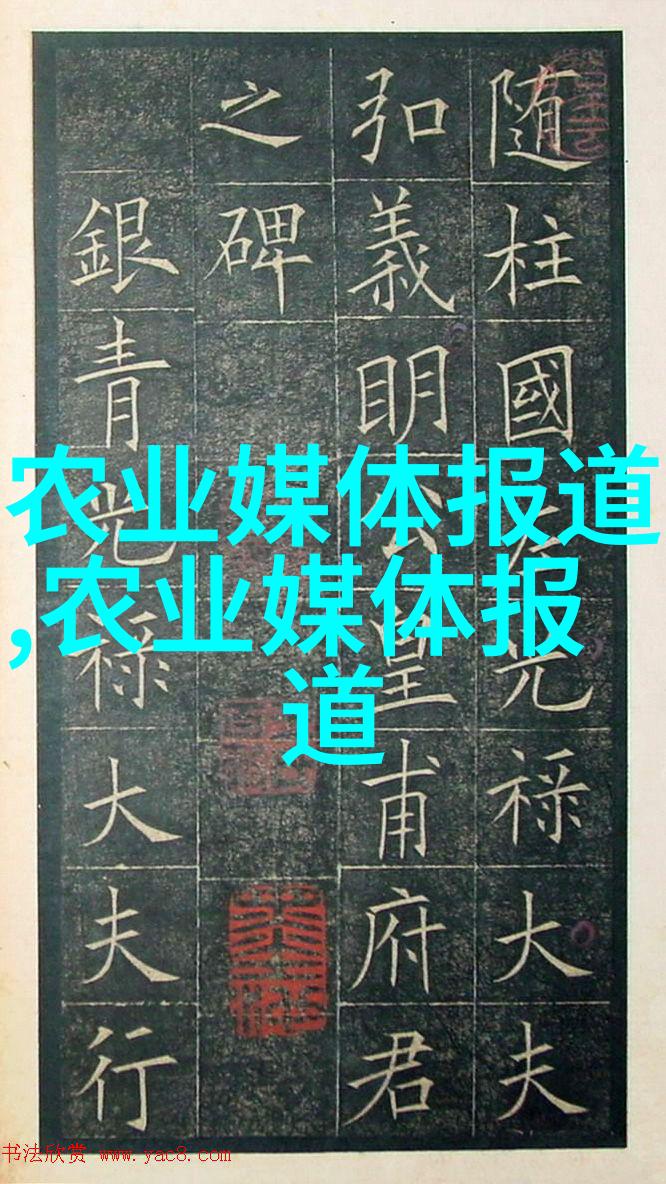 随柱國左光禄大夫
弘義明公皇甫府君
之碑
銀青光禄大夫行
农业媒体报道
,农业媒体报
道
书法欣赏 www.yac8.com